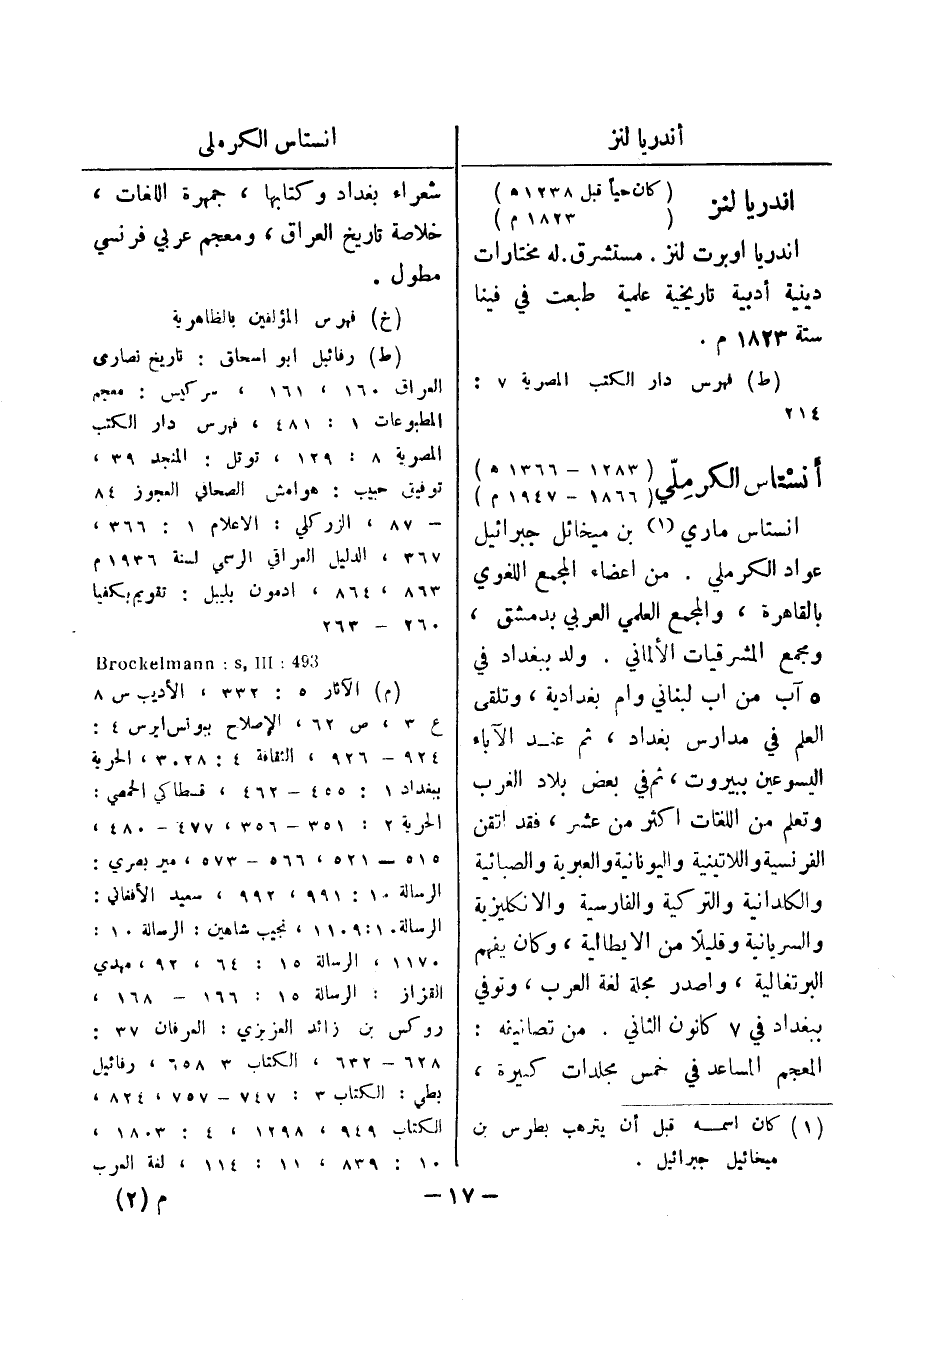 أندريا لنز
اندريا لنز ( كان حياً قبل ١٢٣٨ ه )
( ١٨٢٣ م )
اندريا اوبرت لنز . مستشرق . له مختارات
دينية أدبية تاريخية علمية طبعت في فينا
سنة ١٨٢٣ م .
(ط) فهرس دار الكتب المصرية ٧ :
٢١٤
أنستاس الكرملّي ( ١٢٨٣ – ١٣٦٦ ه )
( ١٨٦٦ – ١٩٤٧ م )
انستاس ماري (١) بن ميخائل جبرائيل
عواد الكرملي . من اعضاء المجمع اللغوي
بالقاهرة ، والمجمع العلمي العربي بدمشق ،
ومجمع المشرقيات الألماني . ولد ببغداد في
٥ آب من اب لبناني وام بغدادية ، وتلقى
العلم في مدارس بغداد ، ثم عند الآباء
اليسوعين ببيروت ، ثم في بعض بلاد الغرب
وتعلم من اللغات اكثر من عشر ، فقد اتقن
الفرنسية واللاتينية واليونانية والعبرية والصبائية
والكلدانية والتركية والفارسية والانكليزية
والسريانية وقليلًا من الايطالية ، وكان يفهم
البرتغالية ، واصدر مجلة لغة العرب ، وتوفي
ببغداد في ٧ كانون الثاني . من تصانيفه :
المعجم المساعد في خمس مجلدات كبيرة ،
(١) كان اسمه قبل أن يترهب بطرس بن
ميخائيل جبرائيل .
انستاس الكرملى
شعراء بغداد وكتابها ، جمهرة اللغات ،
خلاصة تاريخ العراق ، ومعجم عربي فرنسي
مطول .
(خ) فهرس المؤلفين بالظاهرية
(ط) رفائيل ابو اسحاق : تاريخ نصارى
العراق ١٦٠ ، ١٦١ ، سركيس : معجم
المطبوعات ١ : ٤٨١ ، فهرس دار الكتب
المصرية ٨ : ١٢٩ ، توتل : المنجد ٣٩ ،
توفيق حبيب : هوامش الصحافي العجوز ٨٤
– ٨٧ ، الزركلي : الاعلام ١ : ٣٦٦ ،
٣٦٧ ، الدليل العراقي الرسمي لسنة ١٩٣٦ م
٨٦٣ ، ٨٦٤ ، ادمون بليبل : تقويم بكفيا
٢٦٠ – ٢٦٣
Brockelmann : s, III : 493
(م) الآثار ٥ : ٣٣٢ ، الأديب س ٨
ع ٣ ، ص ٦٢ ، الإصلاح ببونس ايرس ٤ :
٩٢٤ – ٩٢٦ ، الثقافة ٤ : ٣٠٢٨ ، الحرية
ببغداد ١ : ٤٥٥ – ٤٦٢ ، قسطاكي الحمصي :
الحرية ٢ : ٣٥١ – ٣٥٦ ، ٤٧٧ – ٤٨٠ ،
٥١٥ – ٥٢١ ، ٥٦٦ – ٥٧٣ ، مير بصري :
الرسالة ١٠ : ٩٩١ ، ٩٩٢ ، سعيد الأفغاني :
الرسالة ١٠ : ١١٠٩ ، نجيب شاهين : الرسالة ١٠ :
١١٧٠ ، الرسالة ١٥ : ٦٤ ، ٩٢ ، مهدي
القزاز : الرسالة ١٥ : ١٦٦ – ١٦٨ ،
روكس بن زائد العزيزي : العرفان ٣٧ :
٦٢٨ – ٦٣٢ ، الكتاب ٣ ٦٥٨ ، رفائيل
بطي : الكتاب ٣ : ٧٤٧ – ٧٥٧ ، ٨٢٤ ،
الكتاب ٩٤٩ ، ١٢٩٨ ، ٤ : ١٨٠٣ ،
١٠ : ٨٣٩ ، ١١ : ١١٤ ، لغة العرب
– ١٧ –
م (٢)